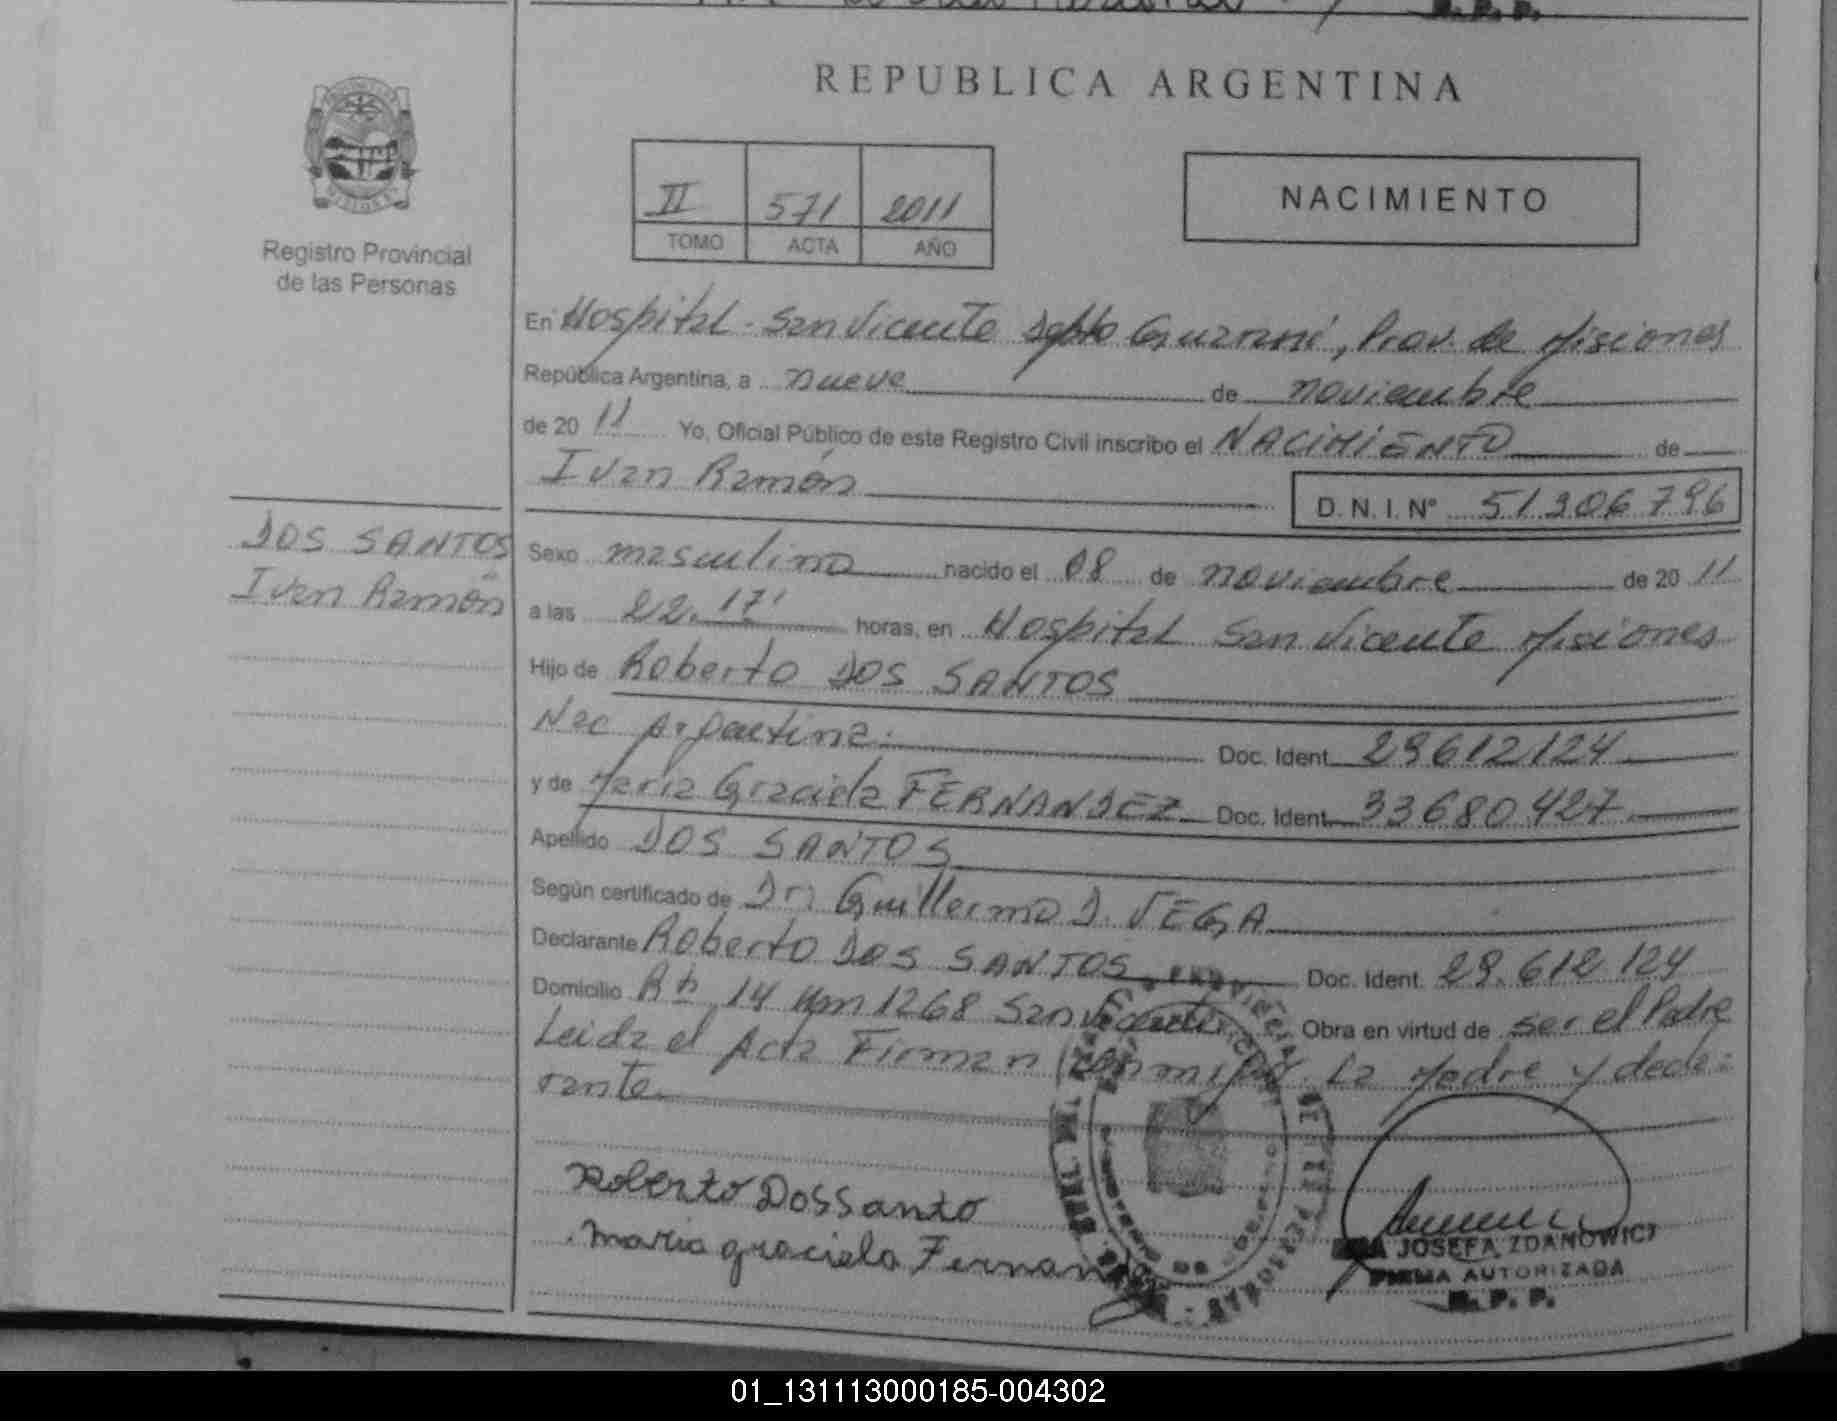 REPUBLICA ARGENTINA
II 571 2011
TOMO ACTA AÑO
NACIMIENTO
Registro Provincial
de las Personas
En Hospital - San Vicente Dpto Guaraní, Prov. de Misiones
República Argentina, a nueve de noviembre
de 2011 Yo, Oficial Público de este Registro Civil inscribo el NACIMIENTO de
Ivan Ramón D.N.I. Nº 51.306.796
DOS SANTOS
Ivan Ramón
Sexo masculino nacido el 08 de noviembre de 2011
a las 22.17' horas, en Hospital San Vicente Misiones
Hijo de Roberto DOS SANTOS
Nac Argentina. Doc. Ident. 29612124
y de Maria Graciela FERNANDEZ Doc. Ident. 33680427
Apellido DOS SANTOS
Según certificado de Dr. Guillermo D. VEGA
Declarante Roberto DOS SANTOS Doc. Ident. 29.612.124
Domicilio Rta 14 Km 1268 San Vicente Obra en virtud de ser el Padre
Leida el Acta Firman conmigo La Madre y decla=
rante.
Roberto DosSanto
maria graciela Fernandez
JOSEFA ZDANOWICZ
FIRMA AUTORIZADA
R. P. P.
01_131113000185-004302